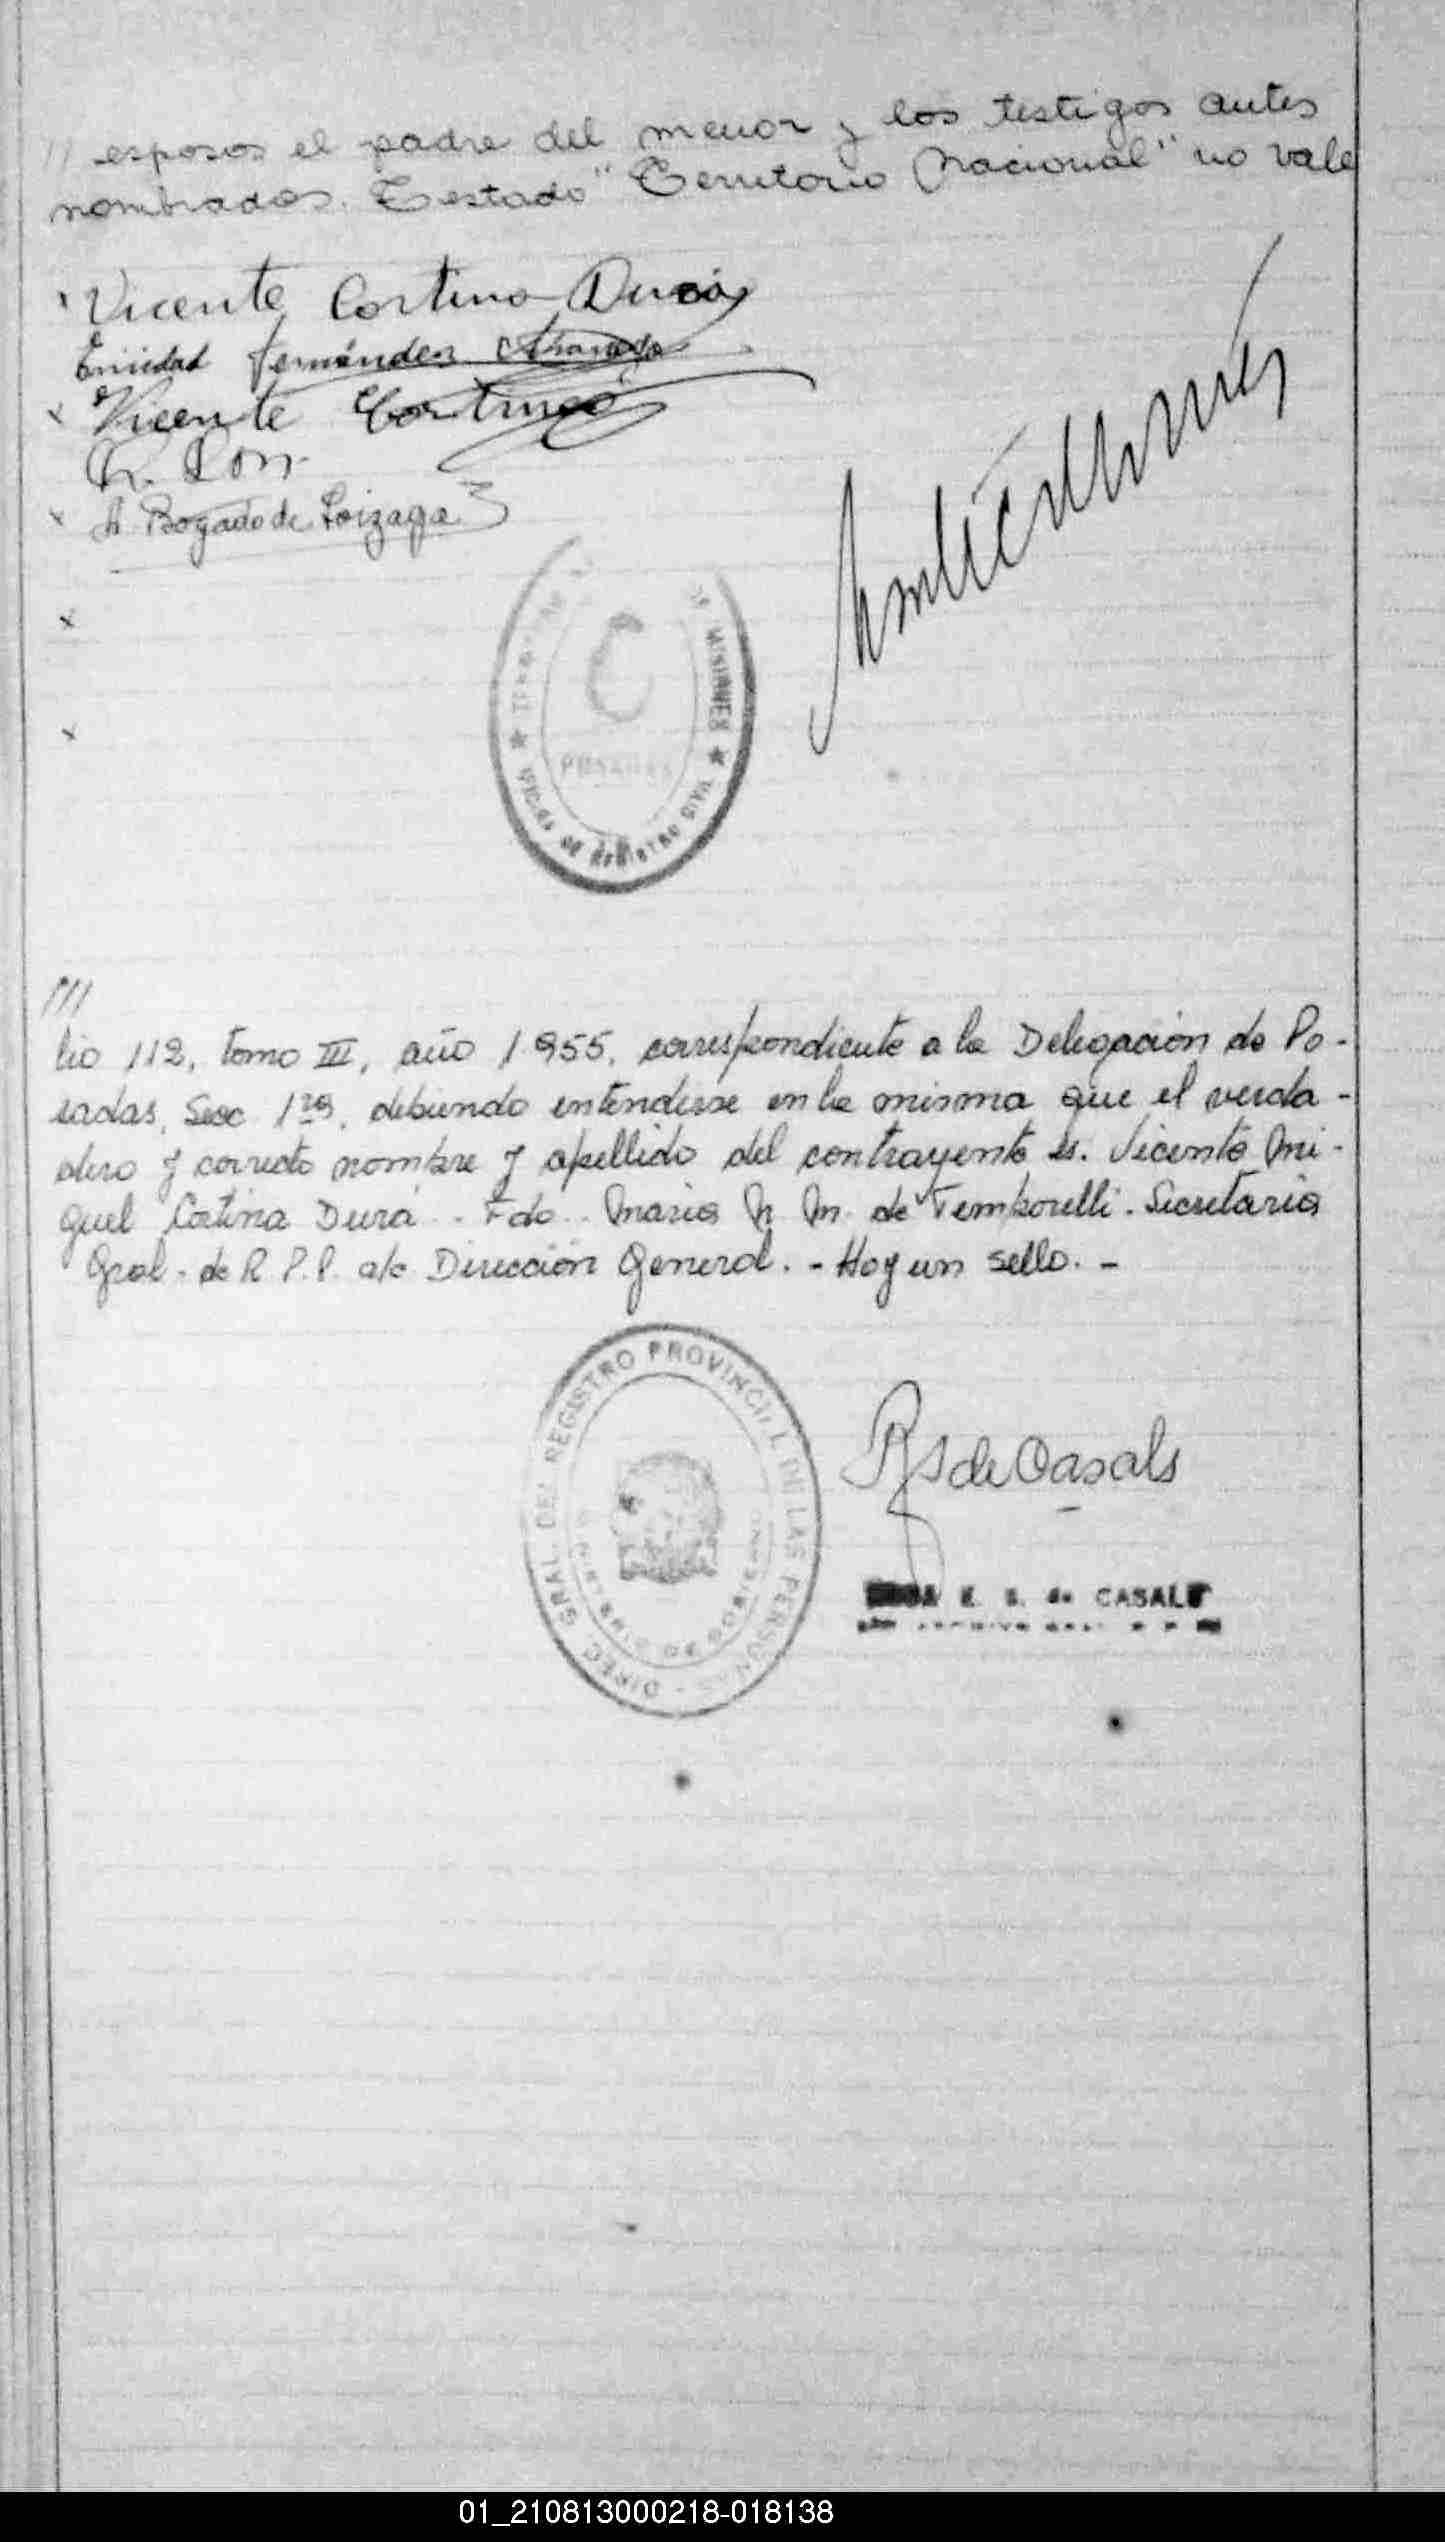 // esposos el padre del menor y los testigos antes
nombrados. Testado "Territorio Nacional" no vale
Vicente Cortina Durá
Fernández
Vicente Cortina
A Bogado de Loizaga
MISIONES
POSADAS
DE REGISTRO CIVIL
///
lio 112, tomo III, año 1955, correspondiente a la Delegación de Po-
sadas, Secc 1ra, debiendo entenderse en la misma que el verda-
dero y correcto nombre y apellido del contrayente es. Vicente Mi-
guel Cortina Durá. - Fdo. María N. M. de Temporelli. Secretaria
Gral. de R. P. P. a/c Dirección General. - Hay un sello. -
DIREC. GRAL. DEL REGISTRO PROVINCIAL DE LAS PERSONAS
MINISTERIO DE GOBIERNO
R S de Casals
E. S. de CASALS
01_210813000218-018138